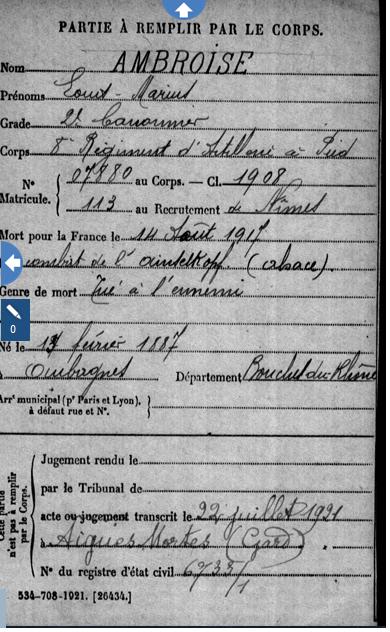 PARTIE À REMPLIR PAR LE CORPS.
Nom AMBROISE
Prénoms Louis - Marius
Grade 2e Canonnier
Corps 8e Régiment d'Artillerie à Pied
N° 07880 au Corps. — Cl. 1908
Matricule. 113 au Recrutement de Nîmes
Mort pour la France le 14 Août 1917
combat de l' (alsace).
Genre de mort Tué à l'ennemi
0
Né le février 1887
Aubagnes Département Bouches du Rhône
Arrt municipal (pr Paris et Lyon),
à défaut rue et N°.
Cette partie
n'est pas à remplir
par le Corps.
Jugement rendu le
par le Tribunal de
acte ou jugement transcrit le 22 juillet 1921
à Aigues Mortes (Gard)
N° du registre d'état civil 6733/1
534-708-1921. [26434.]